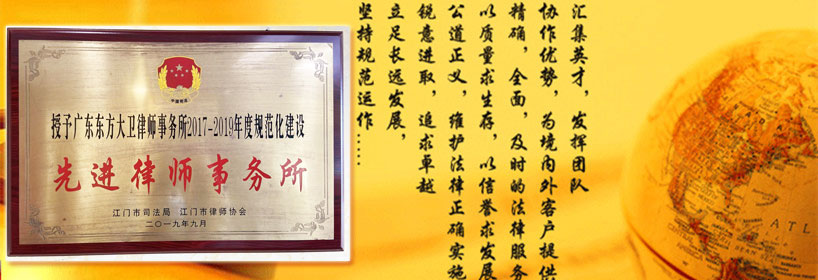 授予广东东方大卫律师事务所2017-2019年度规范化建设
先进律师事务所
江门市司法局 江门市律师协会
二〇一九年九月
汇集英才，发挥团队
协作优势，为境内外客户提供
精确，全面，及时的法律服务
以质量求生存，以信誉求发展
公道正义，维护法律正确实施
锐意进取，追求卓越
立足长远发展，
坚持规范运作……
ATL